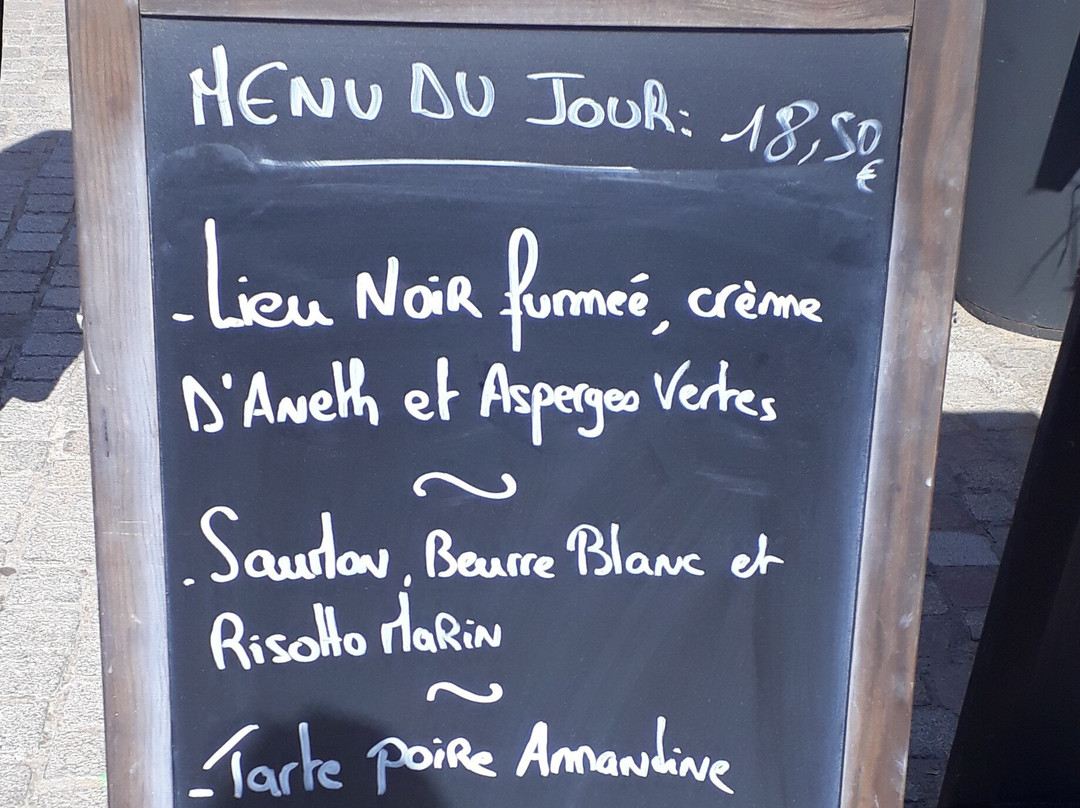 MENU DU JOUR: 18,50 €
- Lieu Noir fumeé, crème
D'Aneth et Asperges Vertes
~
. Saurlon, Beurre Blanc et
Risotto Marin
~
- Tarte poire Amandine